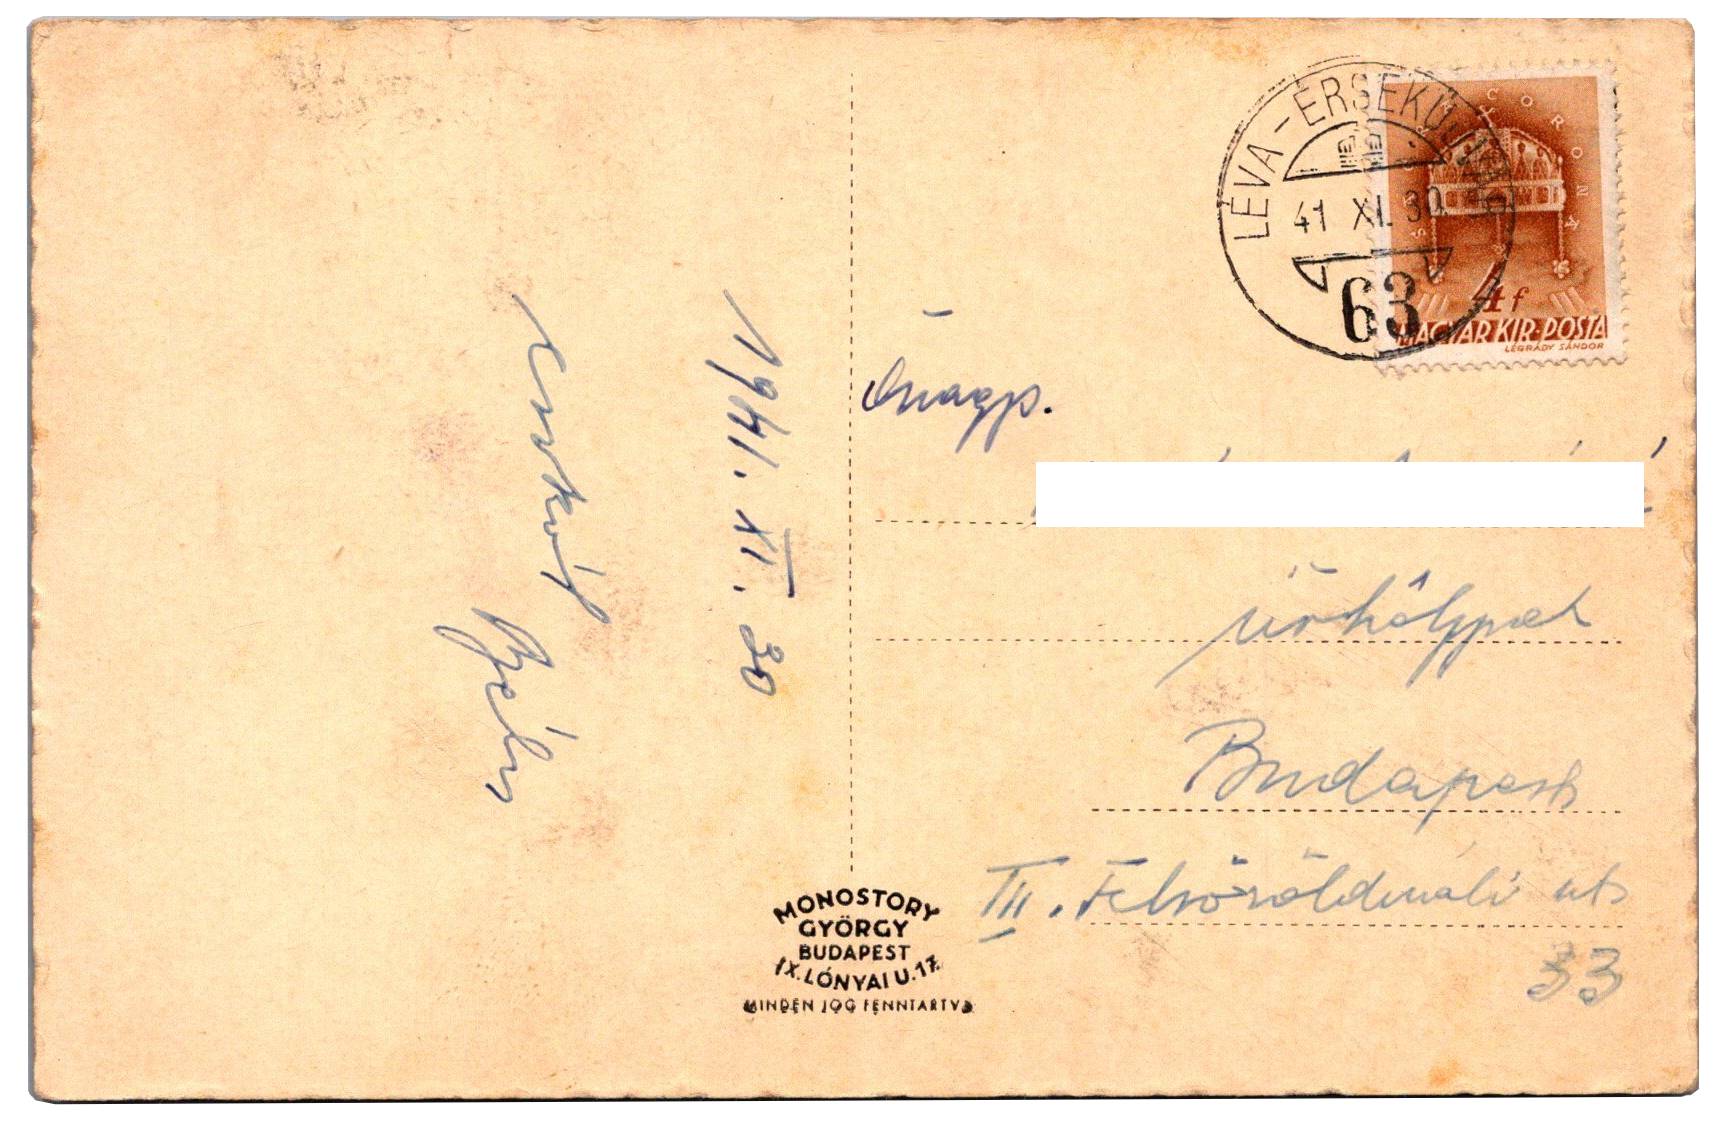 1941. XI. 30
csókol
Béla
LÉVA - ÉRSEKÚJVÁR
41 XI. 30
63
SACRA CORONA
4 f
MAGYAR KIR. POSTA
LÉGRÁDY SÁNDOR
Őnagys.
úrhölgynek
Budapest
III. Felsőzöldmáli út
33
MONOSTORY
GYÖRGY
BUDAPEST
IX. LÓNYAI U. 17.
MINDEN JOG FENNTARTVA